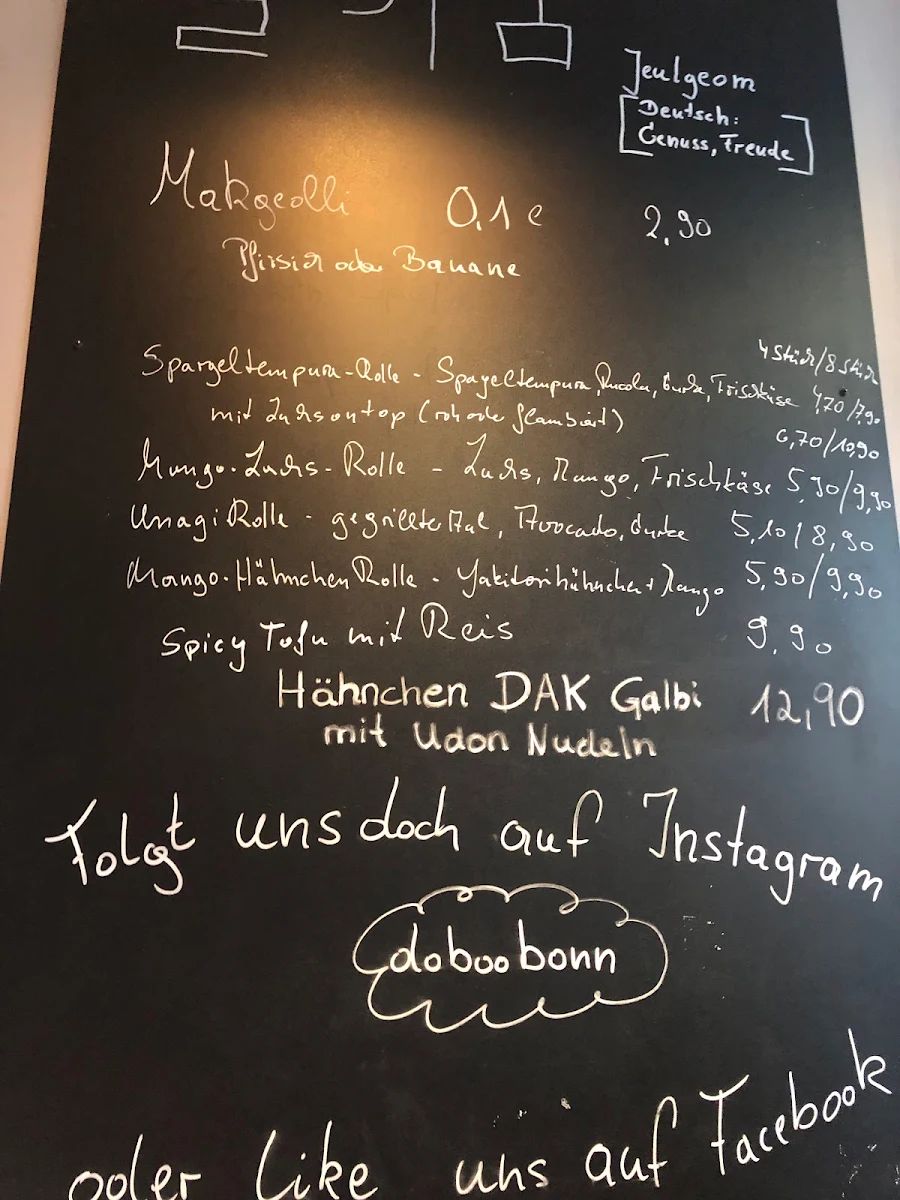 Jeulgeom
[Deutsch:
Genuss, Freude]
Makgeolli 0,1 l 2,90
Pfirsich oder Banane
4 Stück/8 Stück
Spargeltempura-Rolle - Spargeltempura, Rucola, Gurke, Frischkäse 4,70/7,90
mit Lachs on top (roh oder flambiert) 6,70/10,90
Mango-Lachs-Rolle - Lachs, Mango, Frischkäse 5,90/9,90
Unagi Rolle - gegrillter Aal, Avocado, Gurke 5,10/8,90
Mango-Hähnchen Rolle - Yakitorihühnchen + Mango 5,90/9,90
Spicy Tofu mit Reis 9,90
Hähnchen DAK Galbi 12,90
mit Udon Nudeln
Folgt uns doch auf Instagram
doboobonn
oder like uns auf Facebook